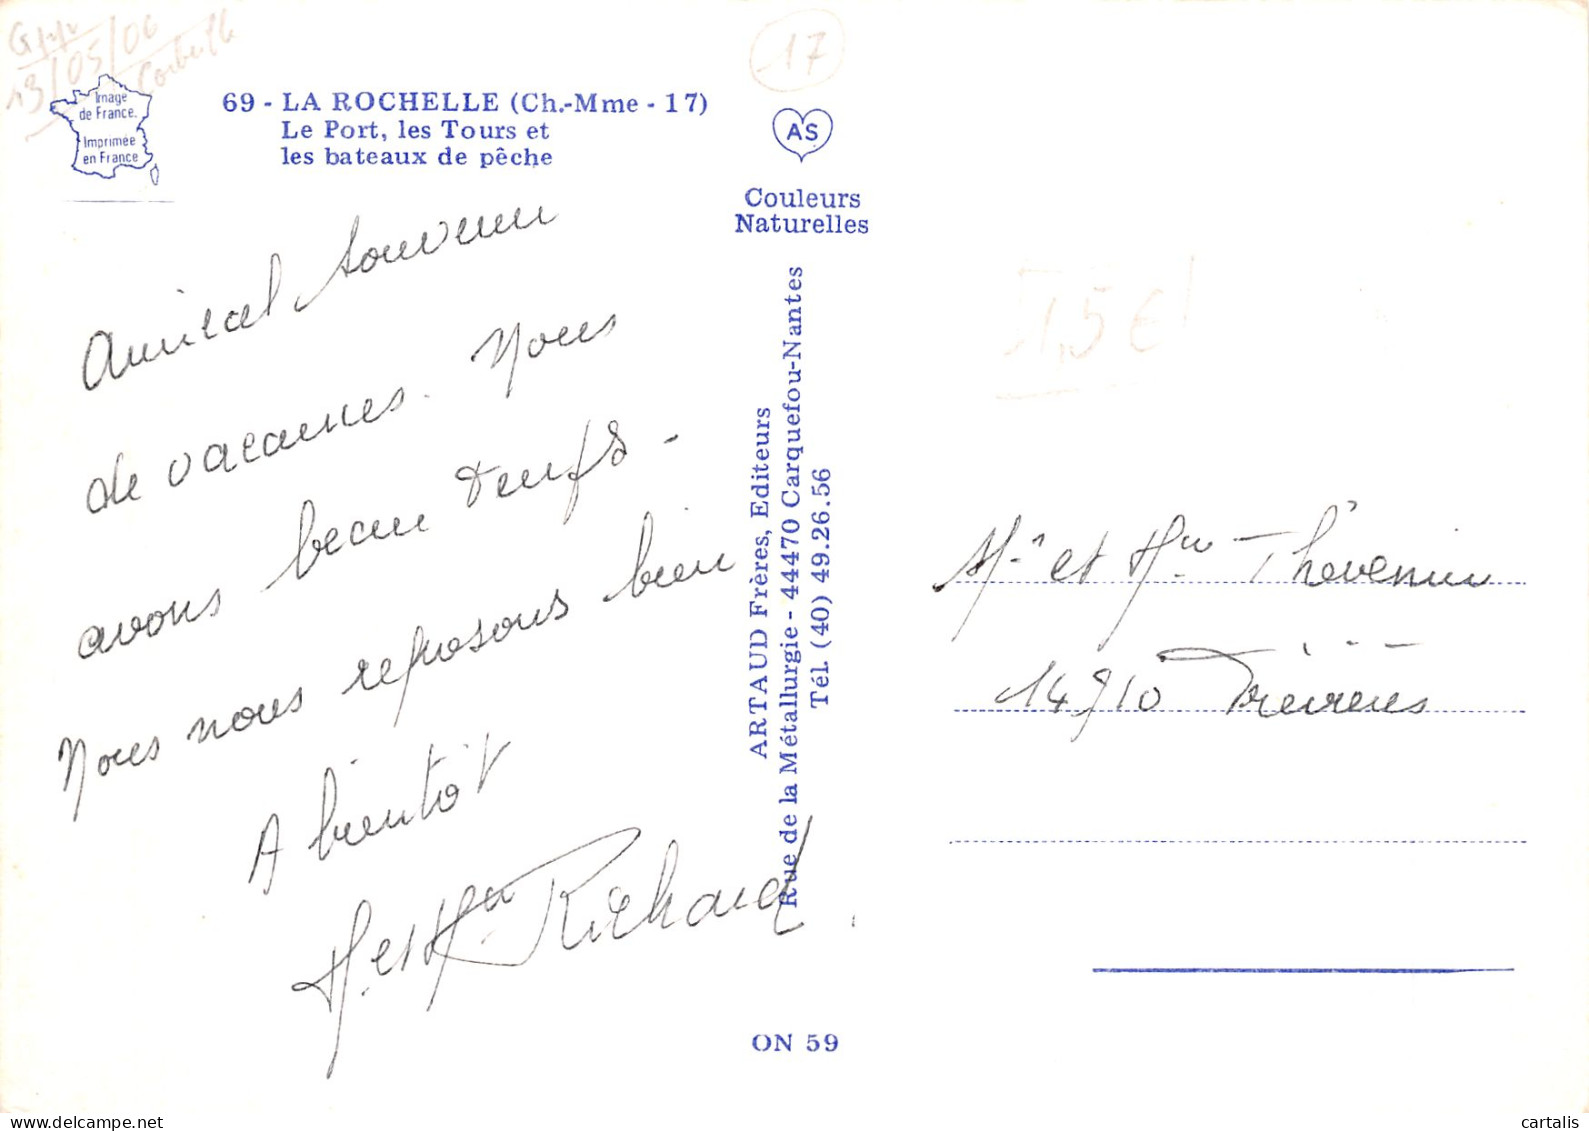 13/05/06
17
Image
de France.
Imprimée
en France
69 - LA ROCHELLE (Ch.-Mme - 17)
Le Port, les Tours et
les bateaux de pêche
AS
Couleurs
Naturelles
Amical souvenir
de vacances. Nous
avons beau temps -
Nous nous reposons bien
A bientôt
M. et Mme Richard
ARTAUD Frères, Editeurs
Rue de la Métallurgie - 44470 Carquefou-Nantes
Tél. (40) 49.26.56
1,5€
Mr et Mme Thévenin
14710 Trévières
ON 59
cartalis